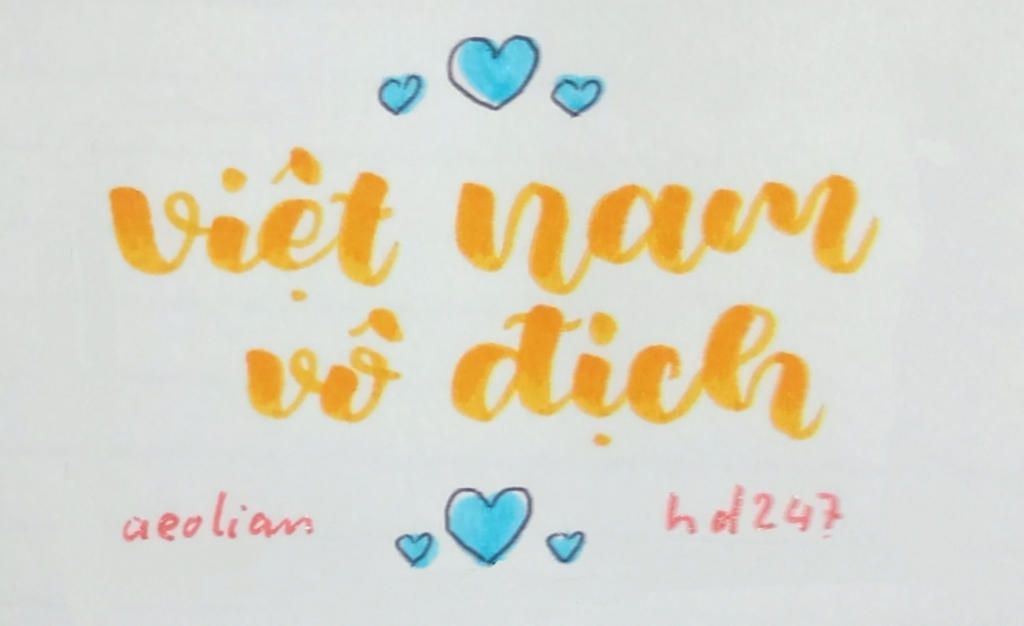 việt nam
vô địch
aeolian hd247